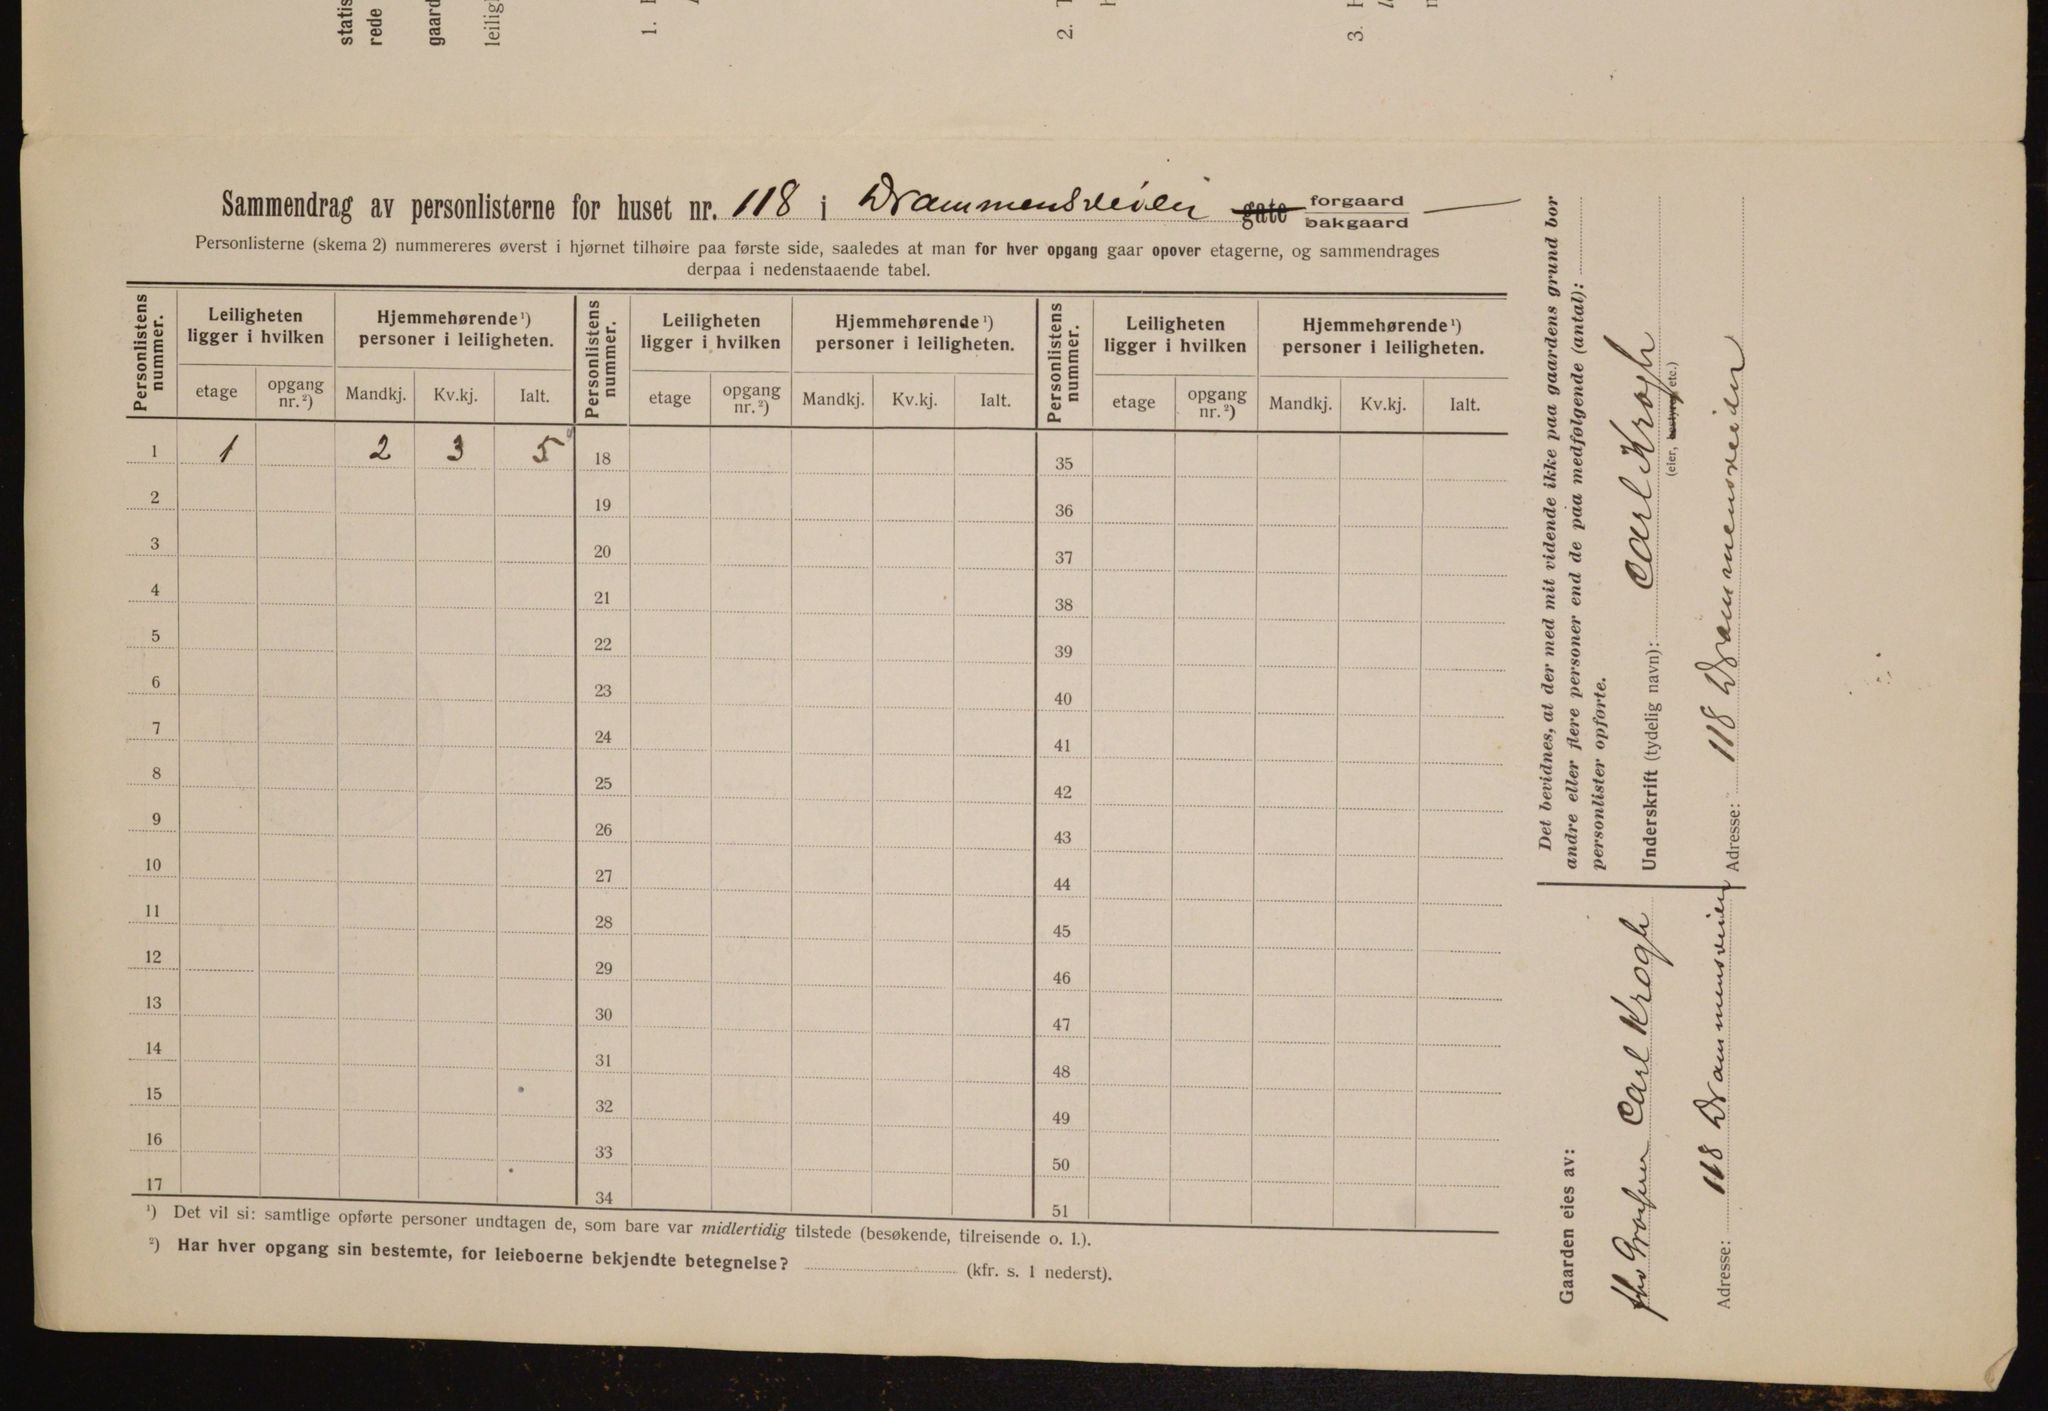 statis
rede
gaard
leilig
1.
2.
3.
Sammendrag av personlisterne for huset nr. 118 i Drammensveien gate forgaard
bakgaard
Personlisterne (skema 2) nummereres øverst i hjørnet tilhøire paa første side, saaledes at man for hver opgang gaar opover etagerne, og sammendrages
derpaa i nedenstaaende tabel.
Personlistens nummer. Leiligheten ligger i hvilken Hjemmehørende¹) personer i leiligheten. Personlistens nummer. Leiligheten ligger i hvilken Hjemmehørende¹) personer i leiligheten. Personlistens nummer. Leiligheten ligger i hvilken Hjemmehørende¹) personer i leiligheten.
etage opgang nr.²) Mandkj. Kv.kj. Ialt. etage opgang nr.²) Mandkj. Kv.kj. Ialt. etage opgang nr.²) Mandkj. Kv.kj. Ialt.
1 1 2 3 5 18 35
2 19 36
3 20 37
4 21 38
5 22 39
6 23 40
7 24 41
8 25 42
9 26 43
10 27 44
11 28 45
12 29 46
13 30 47
14 31 48
15 32 49
16 33 50
17 34 51
¹) Det vil si: samtlige opførte personer undtagen de, som bare var midlertidig tilstede (besøkende, tilreisende o. l.).
²) Har hver opgang sin bestemte, for leieboerne bekjendte betegnelse? (kfr. s. 1 nederst).
Det bevidnes, at der med mit vidende ikke paa gaardens grund bor
andre eller flere personer end de paa medfølgende (antal):
personlister opførte.
Underskrift (tydelig navn): Carl Krogh
(eier, bestyrer etc.)
Adresse: 118 Drammensveien
Gaarden eies av:
Carl Krogh
Adresse: 118 Drammensveien